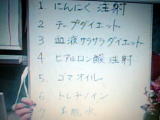 1 にんにく注射
2 テープダイエット
3 血液サラサラダイエット
4 ヒアルロン酸 注射
5 ゴマオイル
6 トレチノイン
7